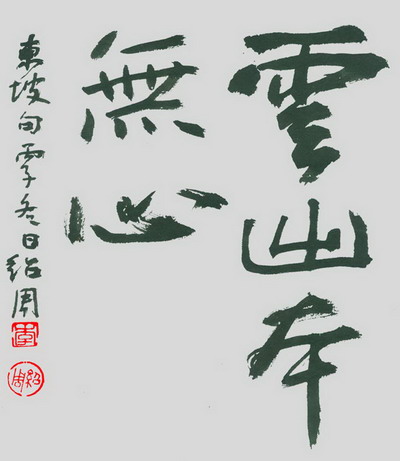 雲出本
無心
東坡句 冬日紹周
李
紹周